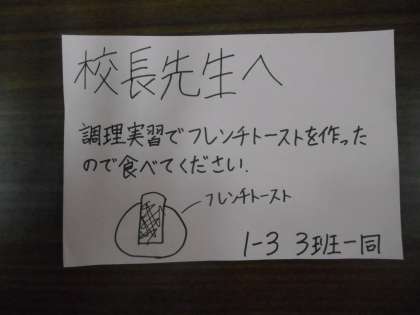 校長先生へ
調理実習でフレンチトーストを作った
ので食べてください.
フレンチトースト
1-3 3班一同